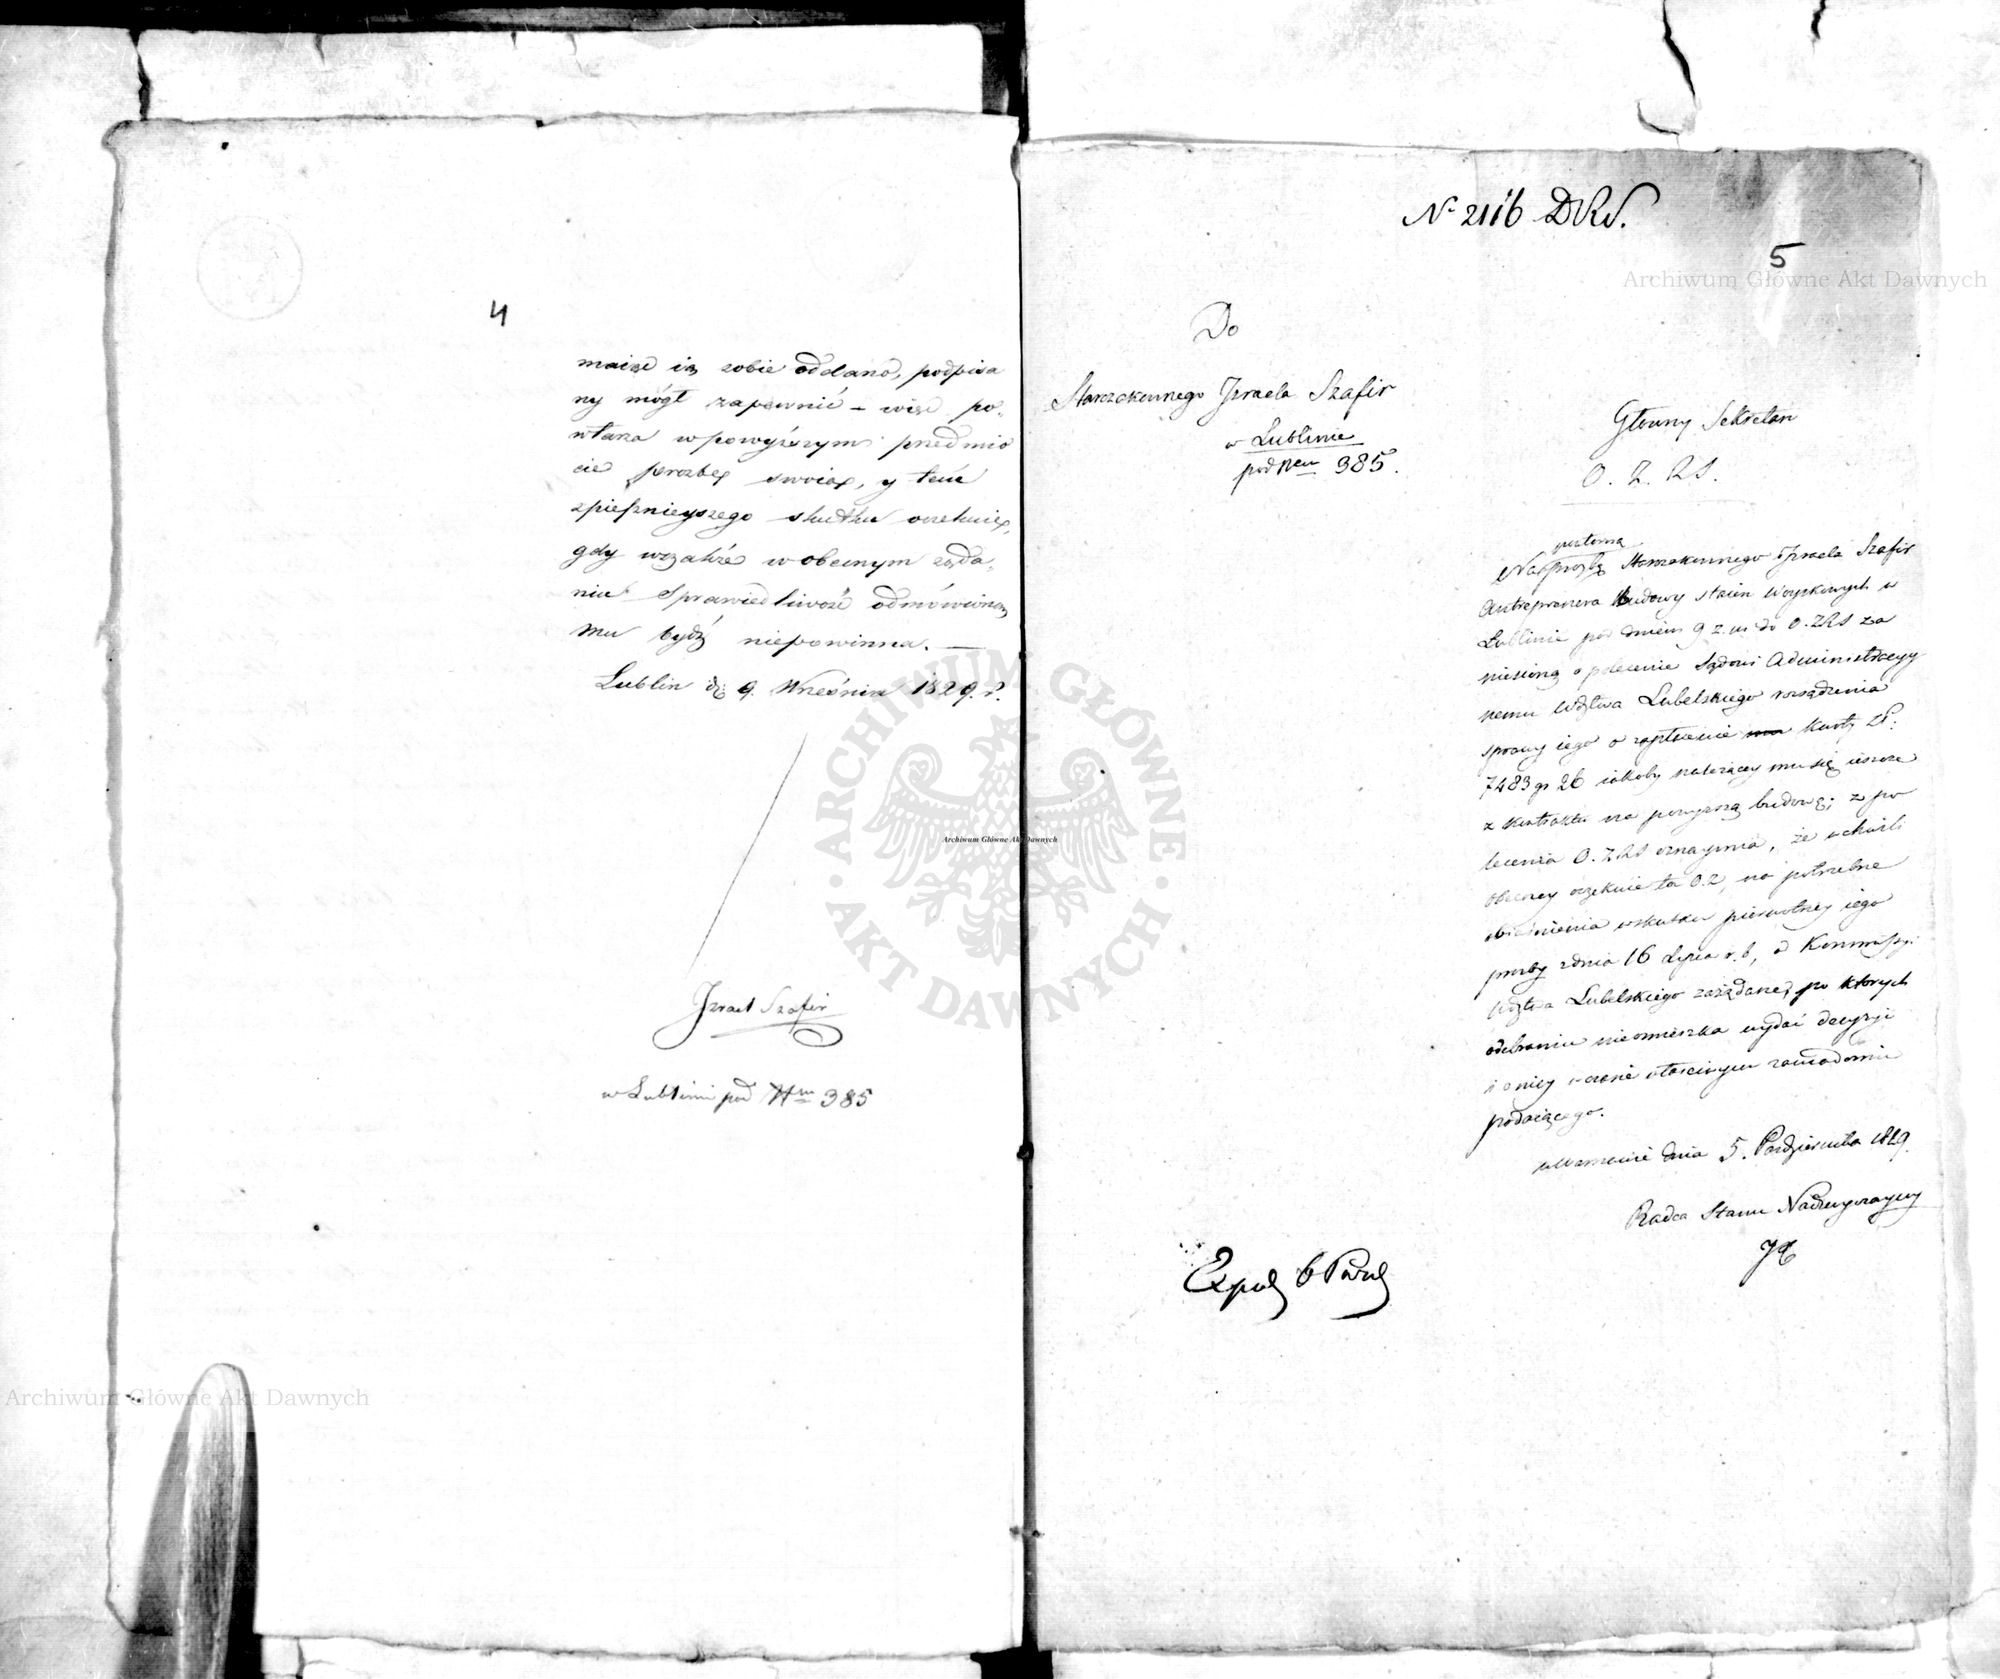 4
maiąc ią sobie oddano, podpisa
ny mógł zapewnić – więc po,
wtarza w powyższym przedmio
cie prozbę swoią, y teńe
spiesznieyszego skutku oczekuie,
gdy wszakże w obecnym żąda,
niu Sprawiedliwość odmówioną
mu bydź niepowinna. —
Lublin d. 9. Września 1829. r.
Izrael Szafir
w Lublinie pod Nrm 385
N 2116 DRS.
5
Do
Starozakonnego Izraela Szafir
w Lublinie
pod Nem 385.
Główny Sekretarz
O. Z. RS.
powtorną
Na prozbę Starozakonnego Izraela Szafir
Antreprenera budowy stáien Woyskowych w
Lublinie pod dniem 9 z. m. do O. ZRS za
niesioną o polecenie Sądowi Administracyy
nemu Wdztwa Lubelskiego rozsądzenia
sprawy iego o zapłacenie kwoty ZP.
7483 gr 26 iakoby należącey mu się ieszcze
z kontraktu na powyższą budowę; z po
lecenia O. ZRS oznaymia, że w chwili
obecney oczekuie ta O.Z. na potrzebne
obiaśnienia w skutku pierwotney iego
prozby z dnia 16 Lipca r. b, od Kommissyi
Wdztwa Lubelskiego zażądane, po których
odebraniu nieomieszka wydać decyzyi
i o niey w czasie właściwym zawiadomi
podaiącego.
w Warszawie dnia 5. Pazdziernika 1829.
Radca Stanu Nadzwyczayny
Exped 6 Pazd
Archiwum Główne Akt Dawnych
Archiwum Główne Akt Dawnych
Archiwum Główne Akt Dawnych
ARCHIWUM GŁÓWNE · AKT DAWNYCH ·